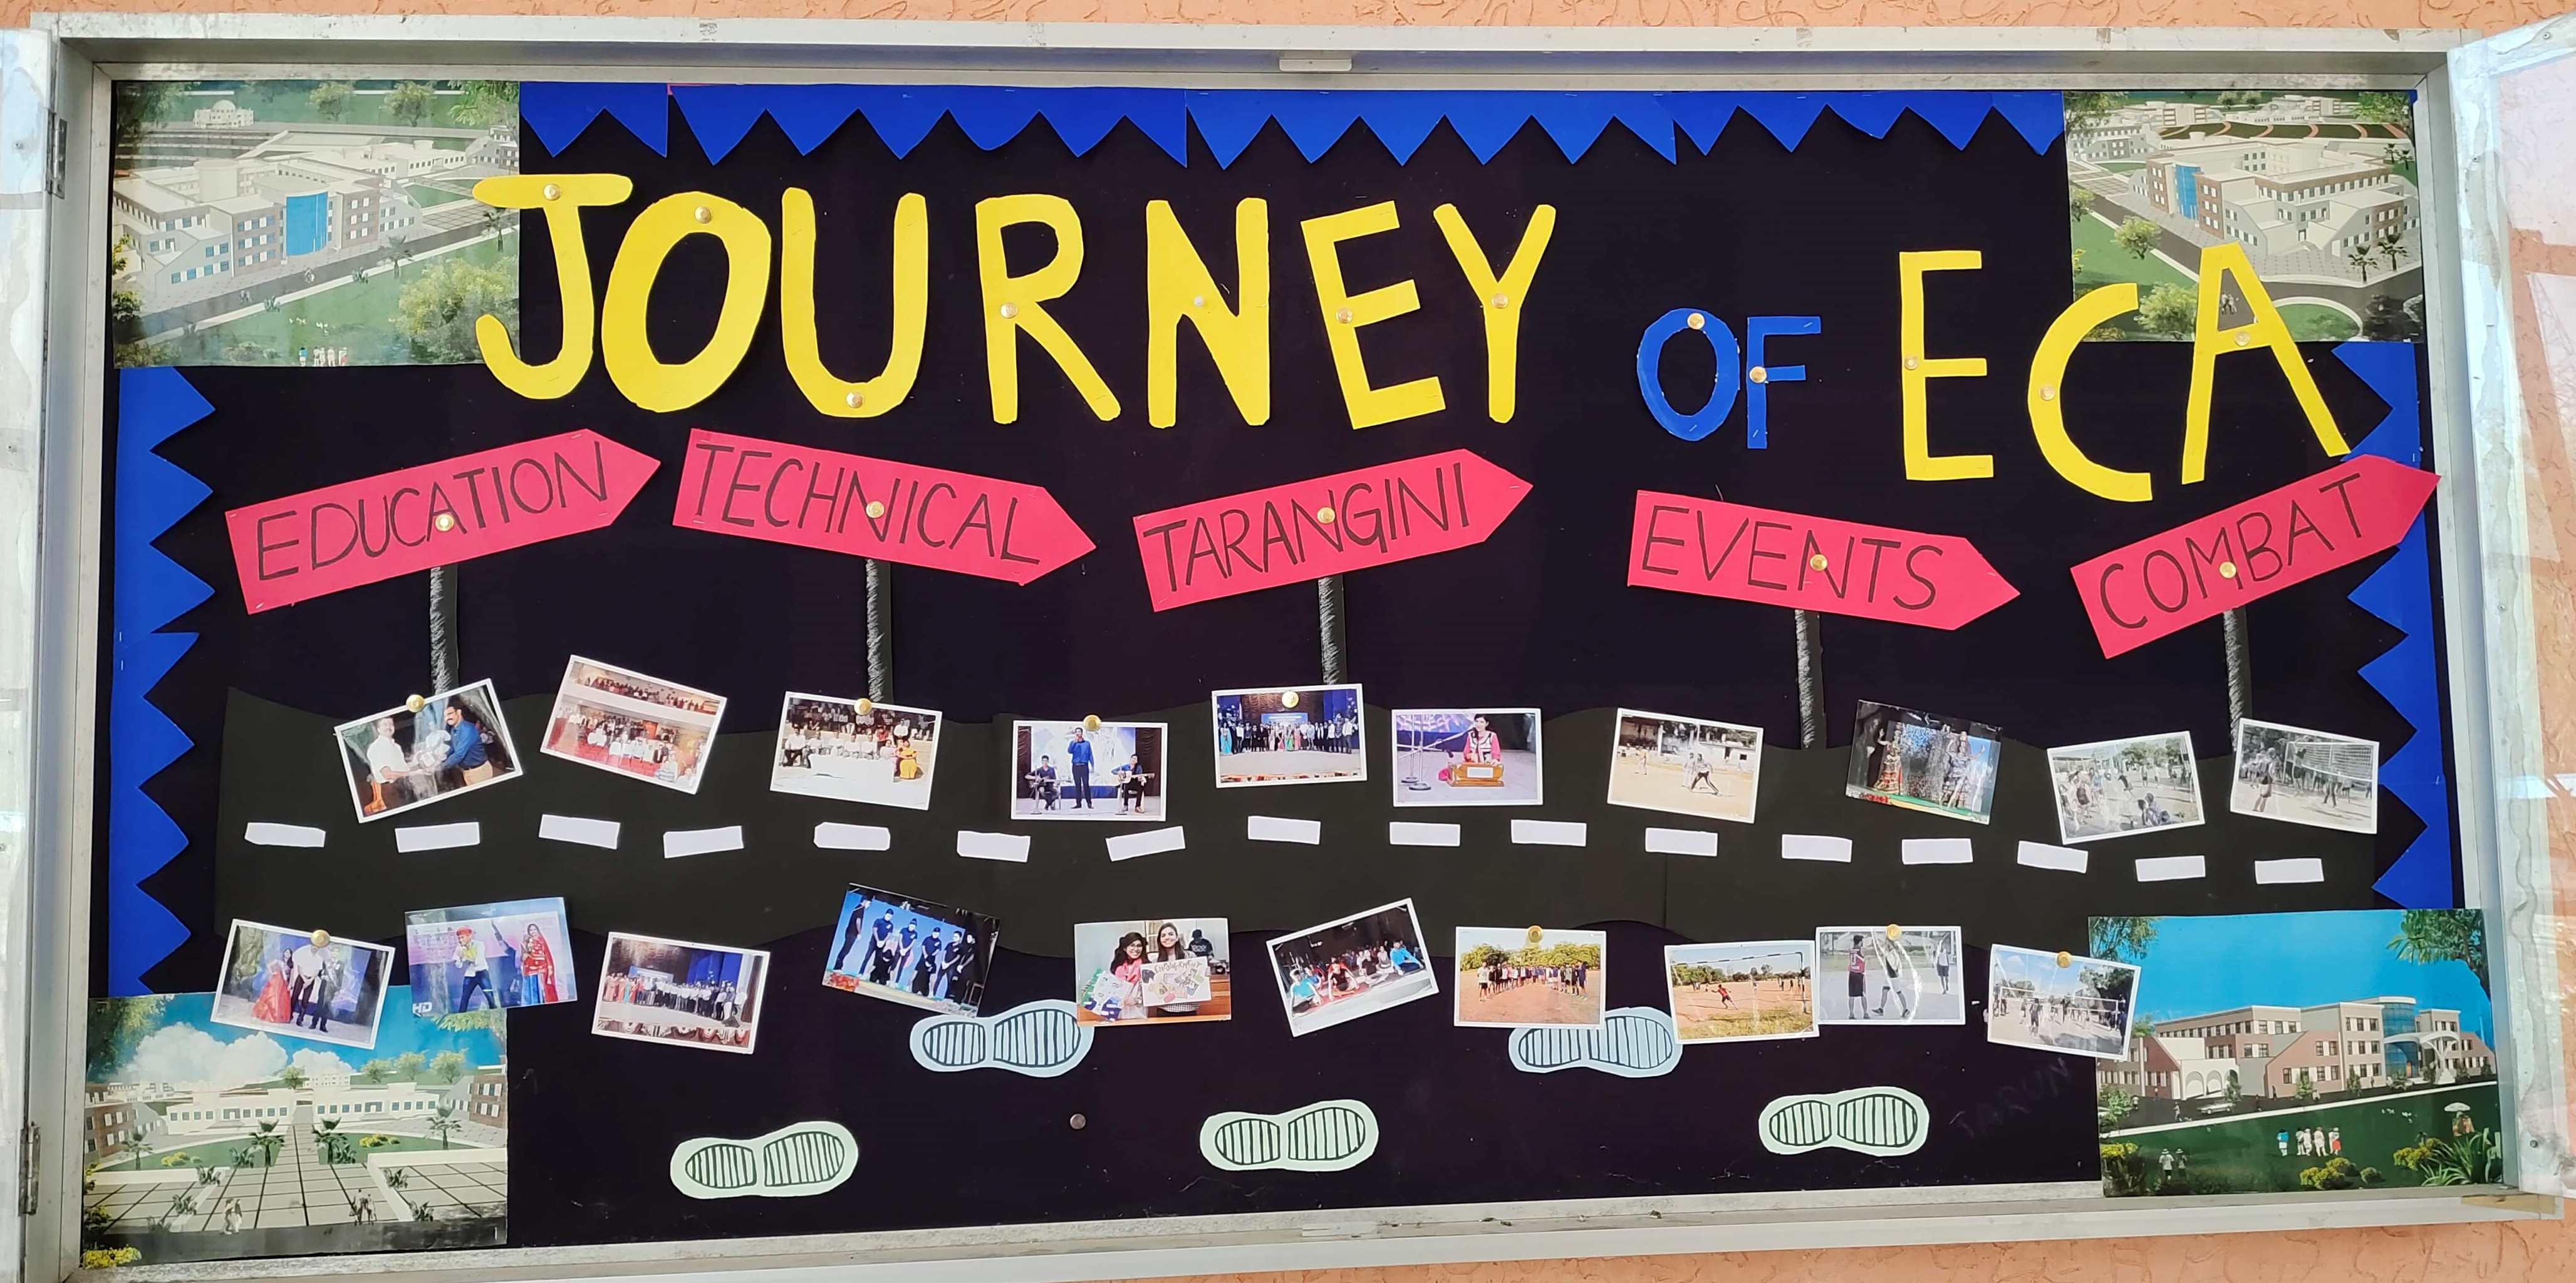 JOURNEY OF ECA
EDUCATION
TECHNICAL
TARANGINI
EVENTS
COMBAT
HD
TARUN